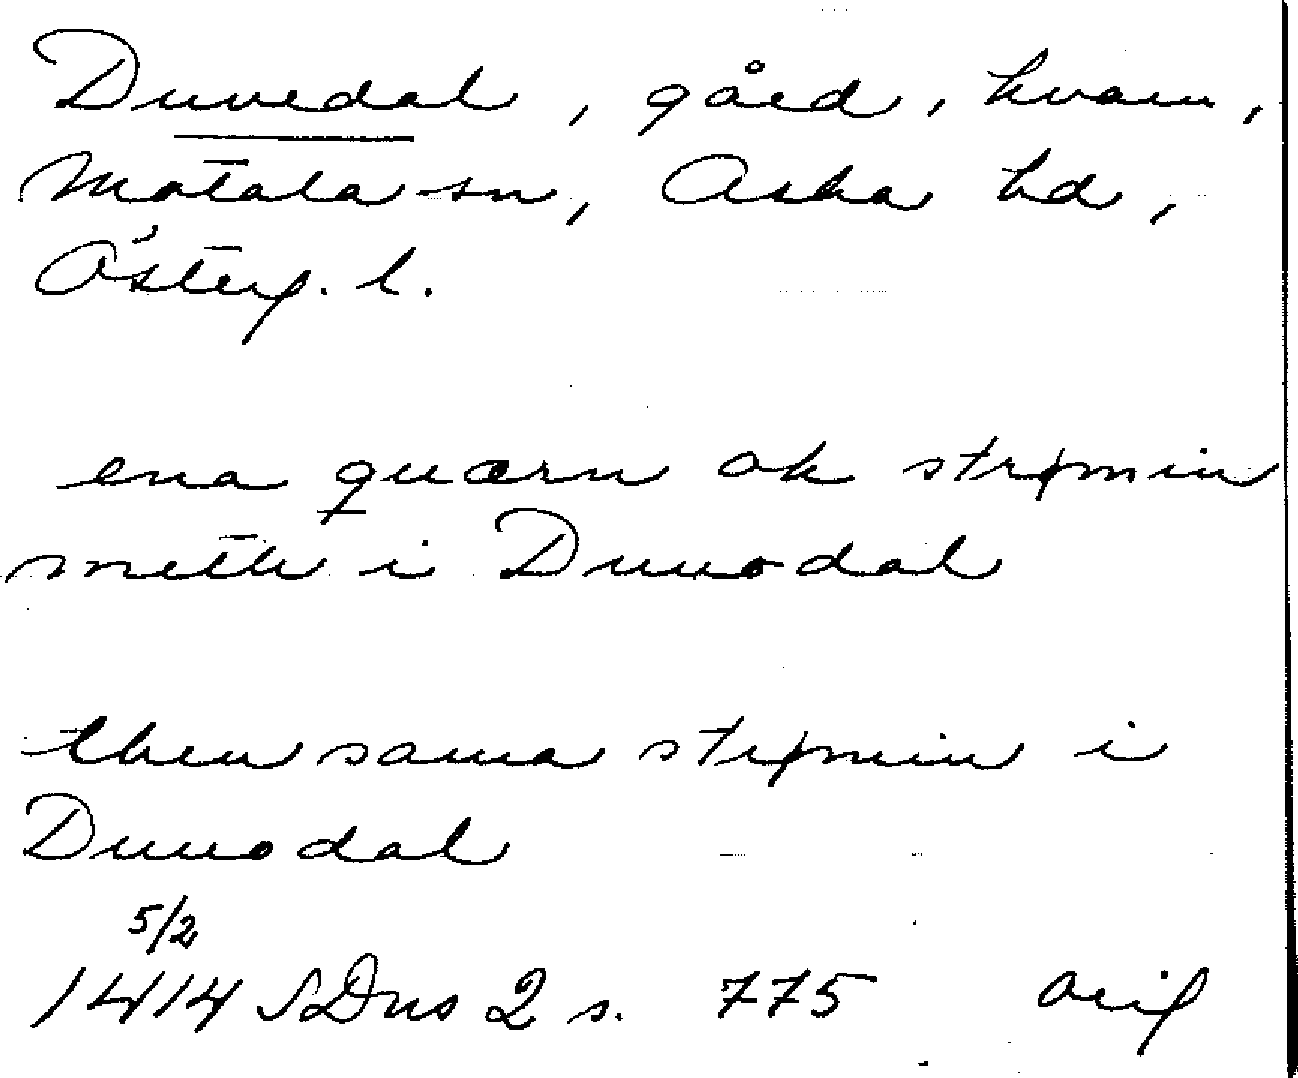 Duvedal, gård, kvarn,
Motala sn, Aska hd,
Österg. l.
ena quærn ok strømin
meth i Duuodal
then sama strømin i
Duuodal
5/2
1414 SDns 2 s. 775 orig